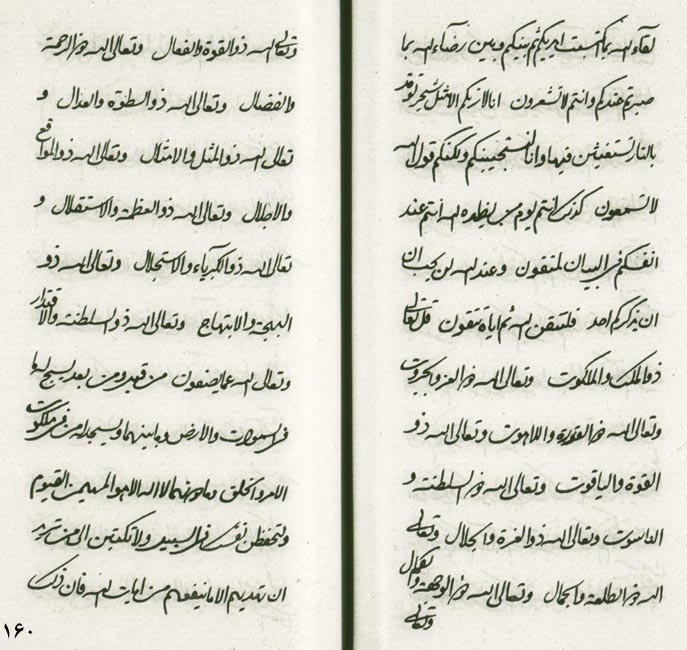 لقاء الله بما اكتسبت ايديكم ثم بينكم وبين رضاء الله بما
صبرتم عندكم وانتم لا تشعرون انا لا نزيكم الا مثل شجر توقد
بالنار تستغيثن فيها وانا لنستجيبنكم ولكنكم قول الله
لا تسمعون كذلك انتم يوم من يظهره الله انتم عند
انفسكم في البيان لمتقون وعند الله لن يحب ان
ان يذكركم احد فلتتقن الله ثم اياه تتقون قل تعالى
ذو الملك والملكوت وتعالى الله ذو العز والجبروت
وتعالى الله ذو القدرة واللاهوت وتعالى الله ذو
القوة والياقوت وتعالى الله ذو السلطنة و
الناسوت وتعالى الله ذو العزة والجلال وتعالى
الله ذو الطلعة والجمال وتعالى الله ذو الوجهة والكمال
وتعالى
وتعالى الله ذو القوة والفعال وتعالى الله ذو الرحمة
والفضال وتعالى الله ذو السطوة والعدال و
تعالى الله ذو المثل والامثال وتعالى الله ذو المواقع
والاجلال وتعالى الله ذو العظمة والاستقلال و
تعالى الله ذو الكبرياء والاستجلال وتعالى الله ذو
البهجة والابتهاج وتعالى الله ذو السلطنة والاقتدار
وتعالى الله عما يصفون من قبل ومن بعد يسبح له ما
في السموات والارض وما بينهما ويسجد له من في ملكوت
الامر والخلق وما دونهما لا اله الا هو المهيمن القيوم
ولتحفظن نفسك في السبيل ولا تكتبن الى من تريد
ان تهديهم الا ما ينفعهم من ايات الله فان ذلك
۱۶۰